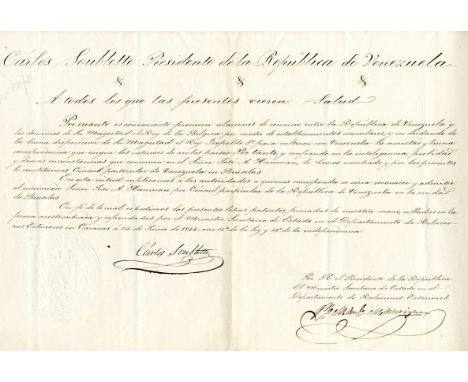 Cárlos Soublette Presidente de la República de Venezuela
& & &
A todos los que las presentes vieren Salud
Por cuanto es conveniente promover relaciones de comercio entre la República de Venezuela y
los dominios de Su Magestad el Rey de los Belgas por medio de establecimientos consulares, y no dudando de
la buena disposicion de Su Magestad el Rey Leopoldo 1º para cultivar con Venezuela la amistad y buena
correspondencia que exigen los intereses de ambos paises: Por tanto, y confiando en la inteligencia,
y demas circunstancias que concurren en el Señor he venido nombrarle y por las presentes
le constituimos Consul particular de Venezuela en Bruselas.
En esta virtud suplicamos á las autoridades á quienes corresponda se sirvan reconocer y admitir
al mencionado Señor por Consul particular de la República de Venezuela en la ciudad
de Bruselas.
En fé de lo cual expedimos las presentes letras patentes firmadas de nuestra mano, selladas en la
forma acostumbrada y refrendadas por el Ministro Secretario de Estado en el Departamento de Relacio-
nes Exteriores en Carácas á de Junio de de la ley y de la independencia.
Cárlos Soublette
Por S. E. el Presidente de la República
El Ministro Secretario de Estado en el
Departamento de Relaciones Exteriores.